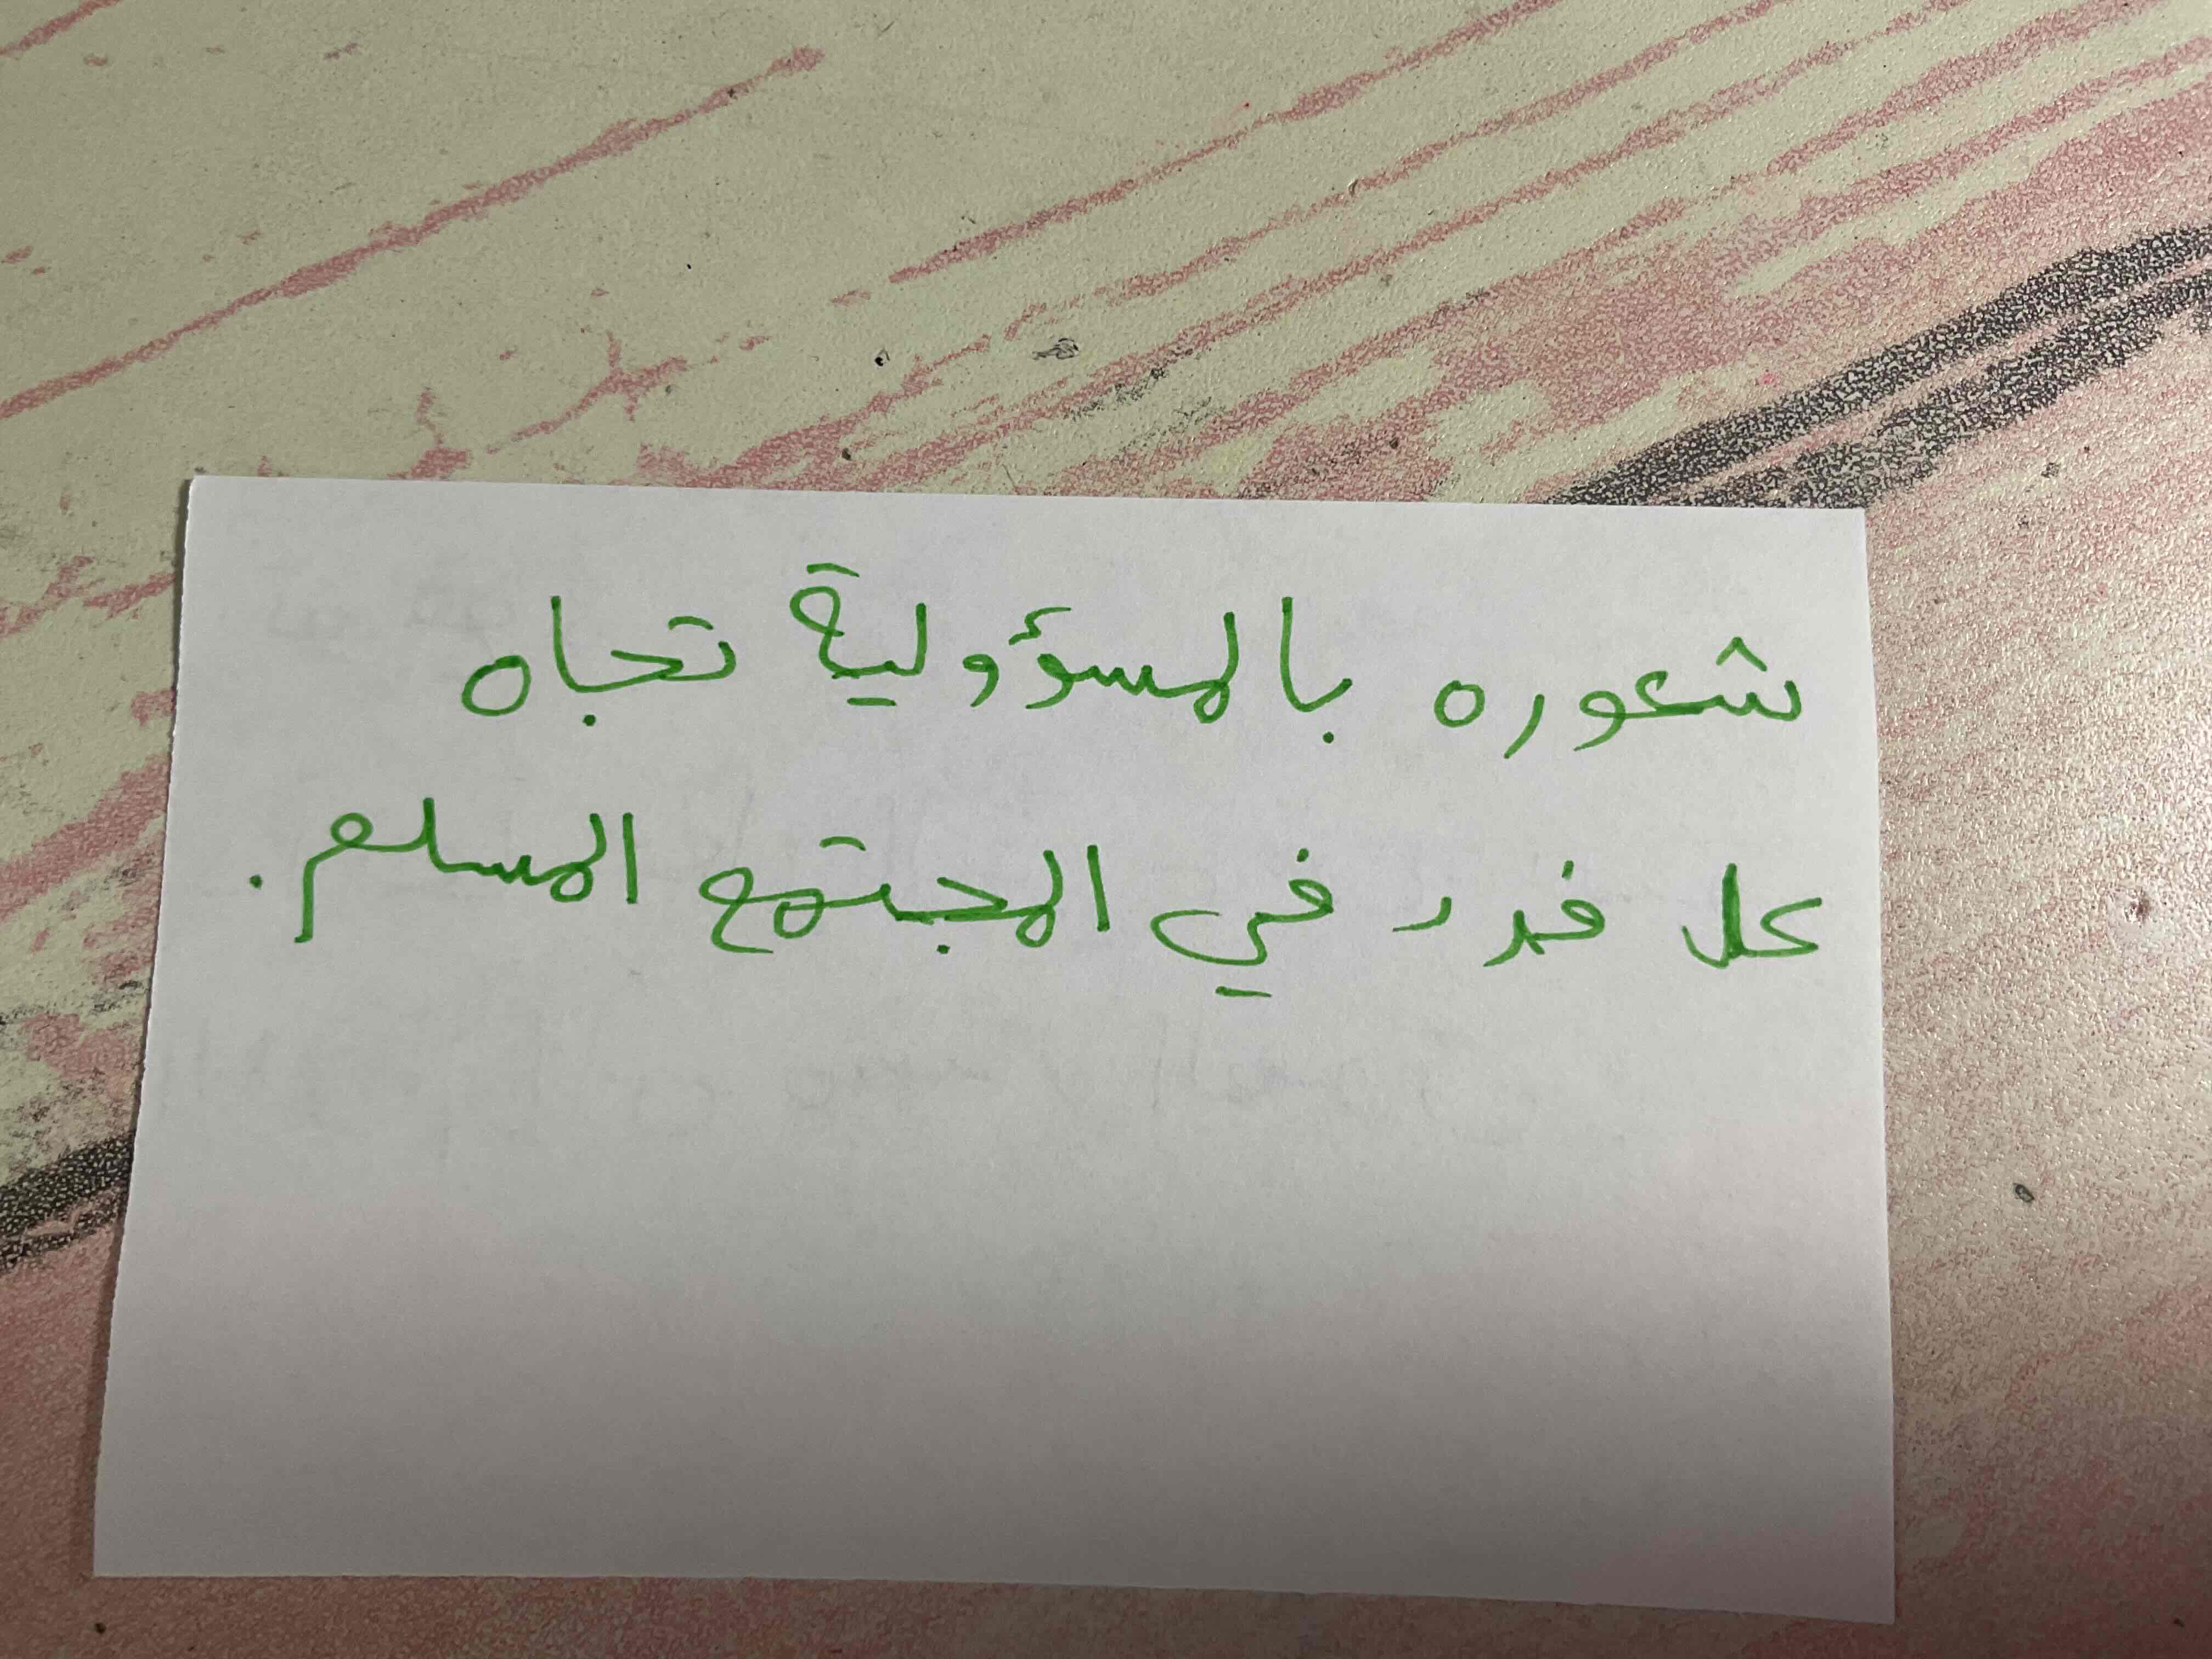 شعوره بالمسؤولية تجاه
كل فرد في المجتمع المسلم.